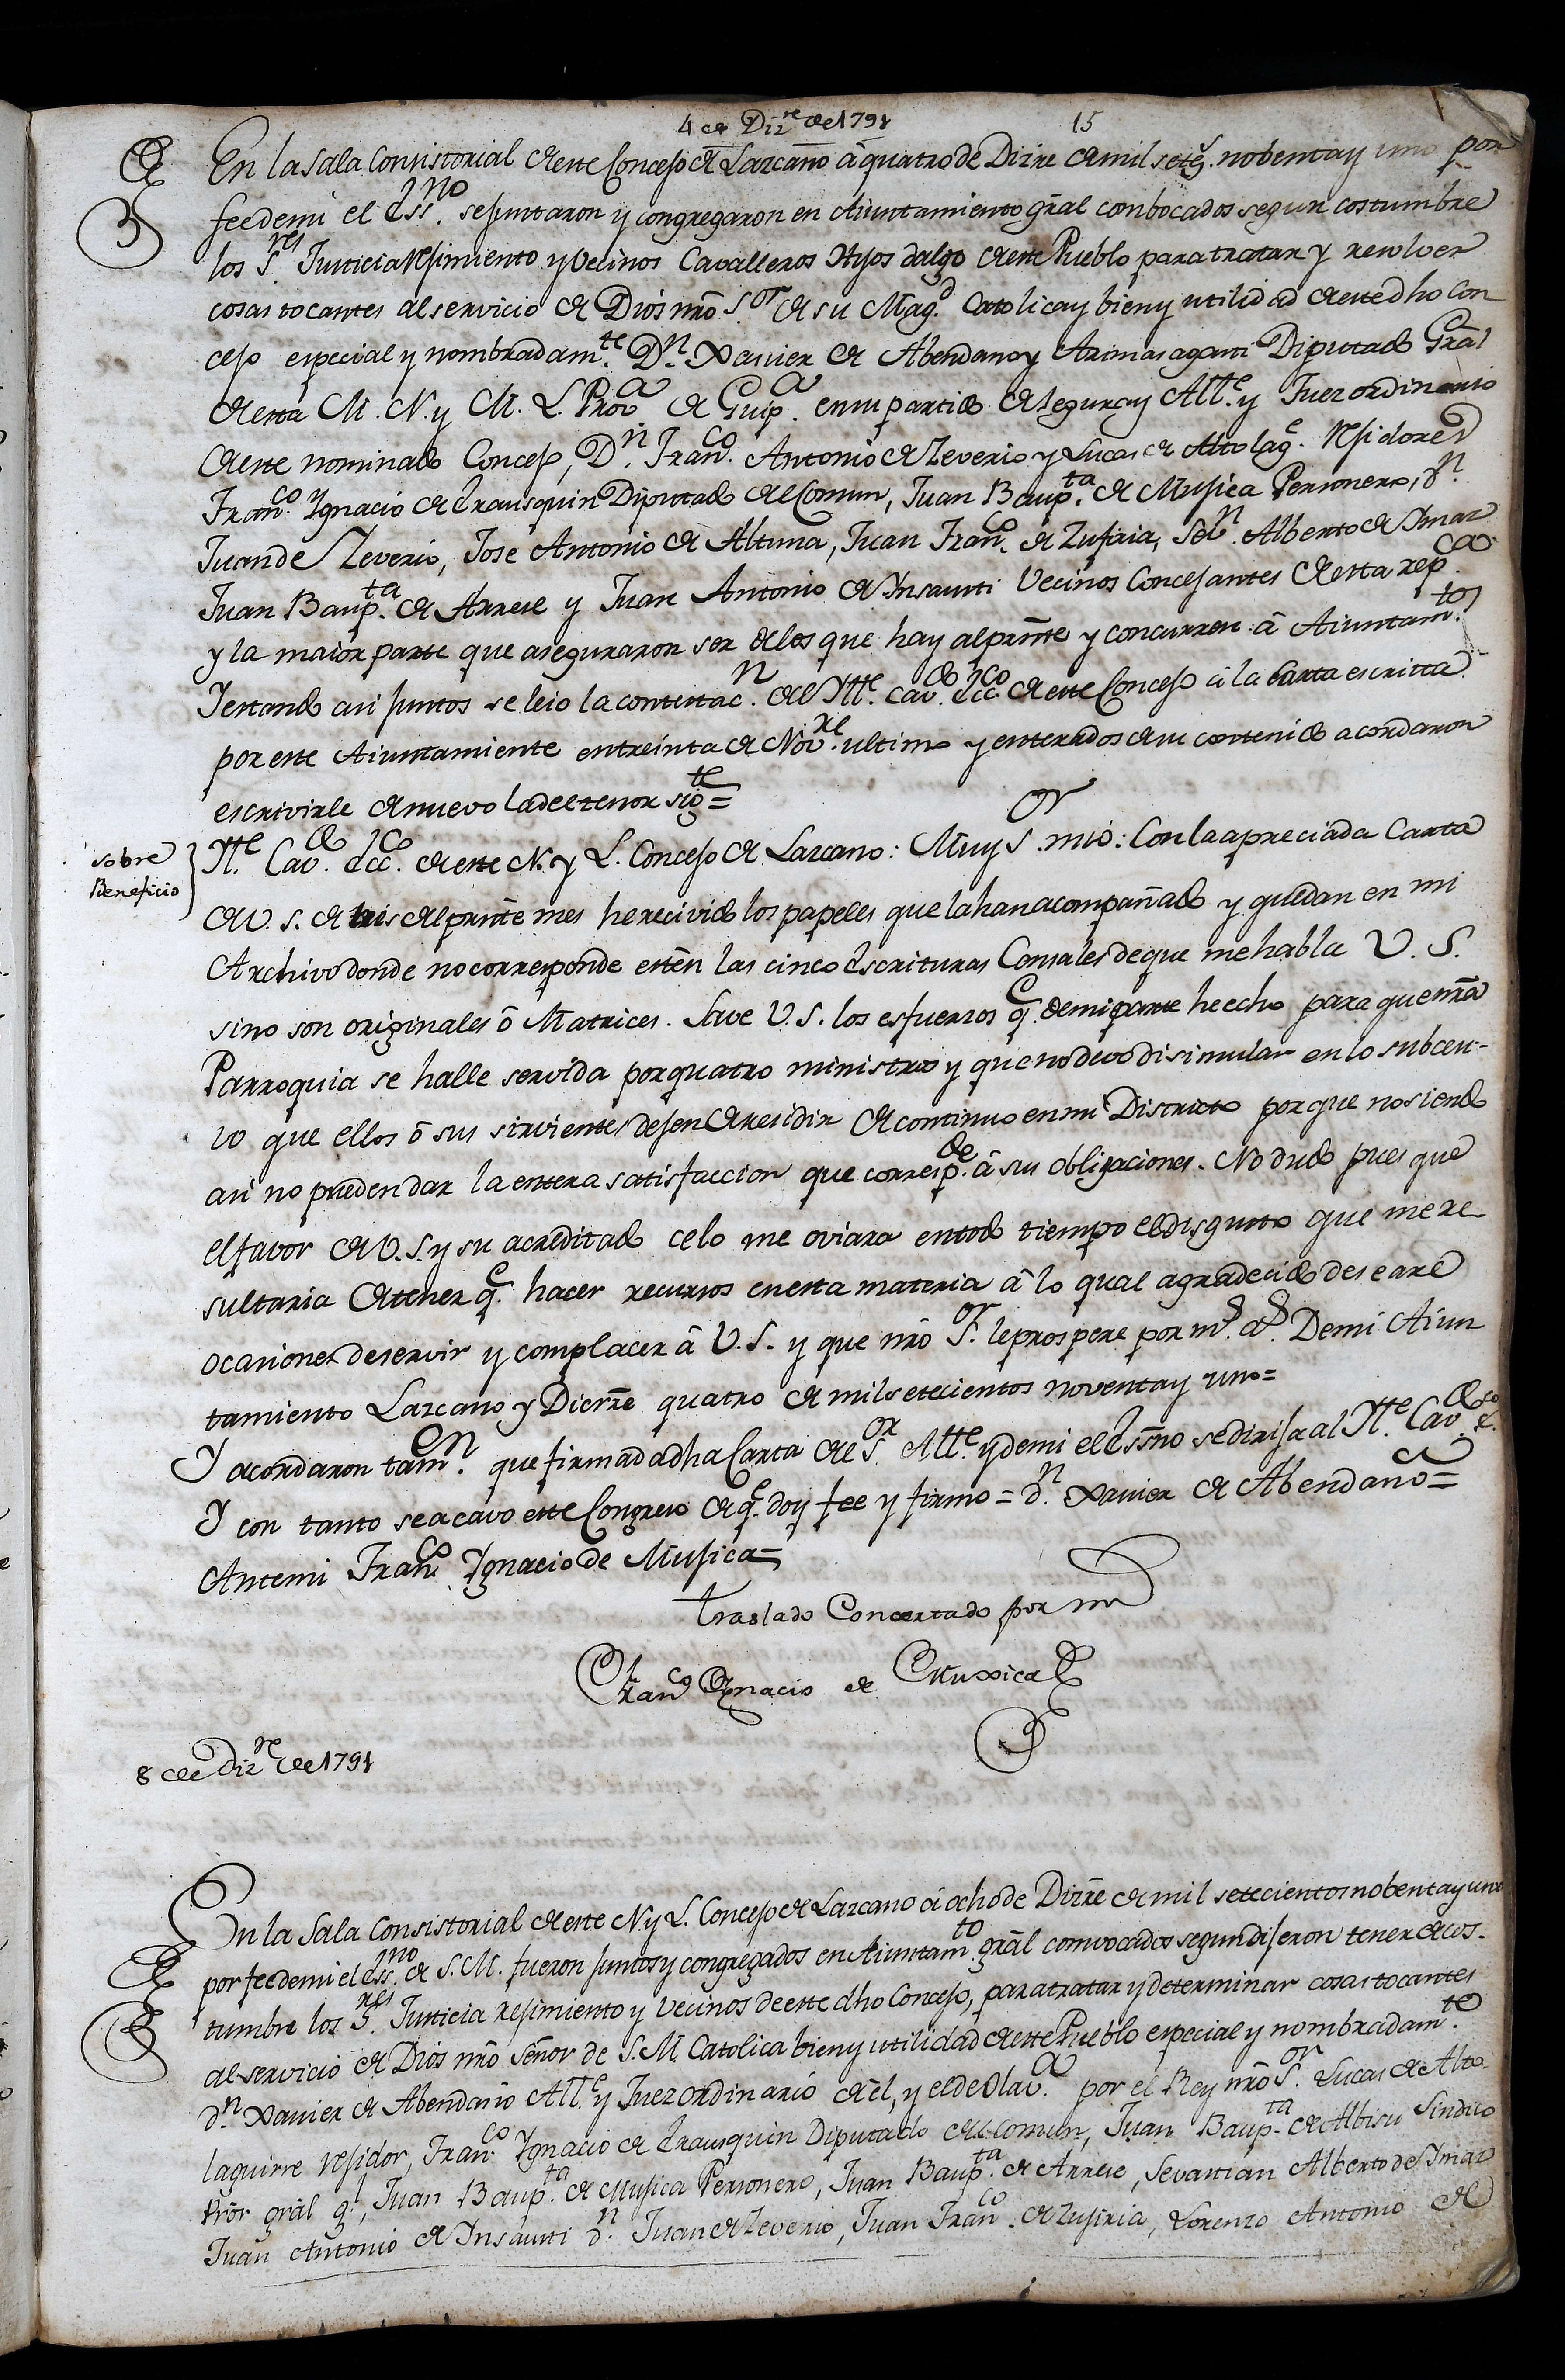 4 de Diz.re de 1791
15
En la Sala Consistorial de este Concejo de Lazcano â quatro de Dizre de mil setez. nobenta y uno por
fee de mi el Ess.no se juntaron y congregaron en Aiuntamiento grāl combocados segun costumbre
los S.res Justicia rejimiento y vecinos Cavalleros Hijos dalgo de este Pueblo para tratar y resolver
cosas tocantes al servicio de Dios nrō S.or de su Mag.d Catolica y bien y utilidad de este dho Con
cejo especial y nombradam.te D.n Xavier de Abendano y Arimasagasti Diputado Grāl
de esta M. N. y M. L. Prov.a de Guip.a en su partido de Segura y All.e y Juez ordinario
de este nominado Concejo, D.n Fran.co Antonio de Zeverio y Lucas de Altolag.e Rejidores
Fran.co Ygnacio de Erausquin Diputado del Comun, Juan Baup.ta de Mujica Personero, d.n
Juan de Zeverio, Jose Antonio de Altuna, Juan Fran.co de Zufiria, Seb.n Alberto de Ymaz
Juan Baup.ta de Arrese y Juan Antonio de Ynsausti Vecinos Concejantes de esta rep.ca
y la maior parte que aseguraron ser de los que hay al prnte y concurren â Aiuntam.tos
Y estando asi juntos se leio la contestac.n del Ytt.e Cav.do Ecc.co de este Concejo â la carta escritta
por este Aiuntamiente en treinta de Nov.re ultimo y enterados de su contenido acordaron
escrivirle de nuevo la del tenor sig.te=
Sobre
Beneficio
Ytt.e Cav.do Ecc.co de este N. y L. Concejo de Lazcano: Muy S.or mio: Con la apreciada Carta
de V. S. de tres del prnte mes he recivido los papeles que la han acompañado y quedan en mi
Archivo donde no corresponde estên las cinco Escrituras Censales de que me habla V. S.
sino son originales ô Matrices. Save V. S. los esfuerzos q.e de mi parte he echo para que nrā
Parroquia se halle servida por quatro ministros y que no devo disimular en lo subcesi-
vo que ellos ô sus sirvientes dejen de residir de continuo en mi Districto por que no siendo
asi no pueden dar la entera satisfaccion que corresp.de â sus obligaciones. No dudo pues que
el favor de V. S. y su acreditado celo me oviara en todo tiempo el disgusto que me re
sultaria de tener q.e hacer recursos en esta materia â lo qual agradecido deseare
ocasiones de servir y complacer â V. S. y que nrō S.or le prospere por m.s a.s De mi Aiun
tamiento Lazcano y Dicirre quatro de mil setecientos noventa y uno=
Y acordaron tam.en que firmada dha Carta del S.or All.e y de mi el Essno se dirija al Ytt.e Cav.do Ec.co
Y con tanto se acavo este Congreso de q.e doy fee y firmo = d.n Xavier de Abendaño=
Ante mi Fran.co Ygnacio de Mujica=
Traslado Concertado por mi
Fran.co Ygnacio de Muxica
8 de Diz.re de 1791
En la Sala Consistorial de este N. y L. Concejo de Lazcano â ocho de Dizre de mil setecientos nobenta y uno
por fee de mi el Ess.no de S. M. fueron juntos y congregados en Aiuntam.to grāl comvocados segun dijeron tener de cos-
tumbre los S.res Justicia rejimiento y Vecinos de este dho Concejo, para tratar y determinar cosas tocantes
al servicio de Dios nrō señor de S. M. Catolica bien y utilidad de este Pueblo especial y nombradam.te
d.n Xavier de Abendaño All.e y Juez Ordinario de êl, y el de Olav.a por el Rey nrō S.or Lucas de Alto-
laguirre rejidor, Fran.co Ygnacio de Erausquin Diputado del comun, Juan Baup.ta de Albisu Sindico
Prōr grāl q.l, Juan Baup.ta de Mujica Personero, Juan Baup.ta de Arrese, Sevastian Alberto de Ymaz
Juan Antonio de Ynsausti d.n Juan de Zeverio, Juan Fran.co de Zufiria, Lorenzo Antonio de